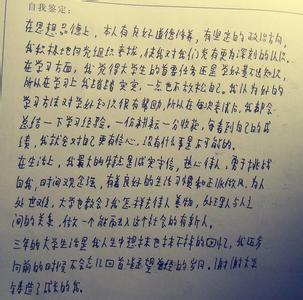 自我鉴定:
在思想品德上，本人有良好道德修养，有坚定的政治方向，
我积极地向党组织靠拢，使我对我们党有更为深刻的认识。
在学习方面，我觉得大学生的首要任务还是学好文化知识，
所以在学习上我踏踏实实，一点也不放松自己。我认为好的
学习方法对学好知识很有帮助，所以在每次考试后，我都会
总结一下学习经验。一份耕耘一分收获，每看到自己的成
绩，我就会对自己更有信心，没有什么事是不可能的。
在生活上，我最大的特点是诚实守信，热心待人，勇于挑战
自我，时间观念强，有着良好的生活习惯和正派作风。为人
处世，大学也教会了我怎样去待人接物，处理人与人之
间的关系，做一个能融入这个社会的有新人。
三年的大学生活是我人生中想抹也抹不掉的回忆，我在方
向前的时候不会忘记回首遥望着他的岁月。谢谢大学
生铸造了成长的我。